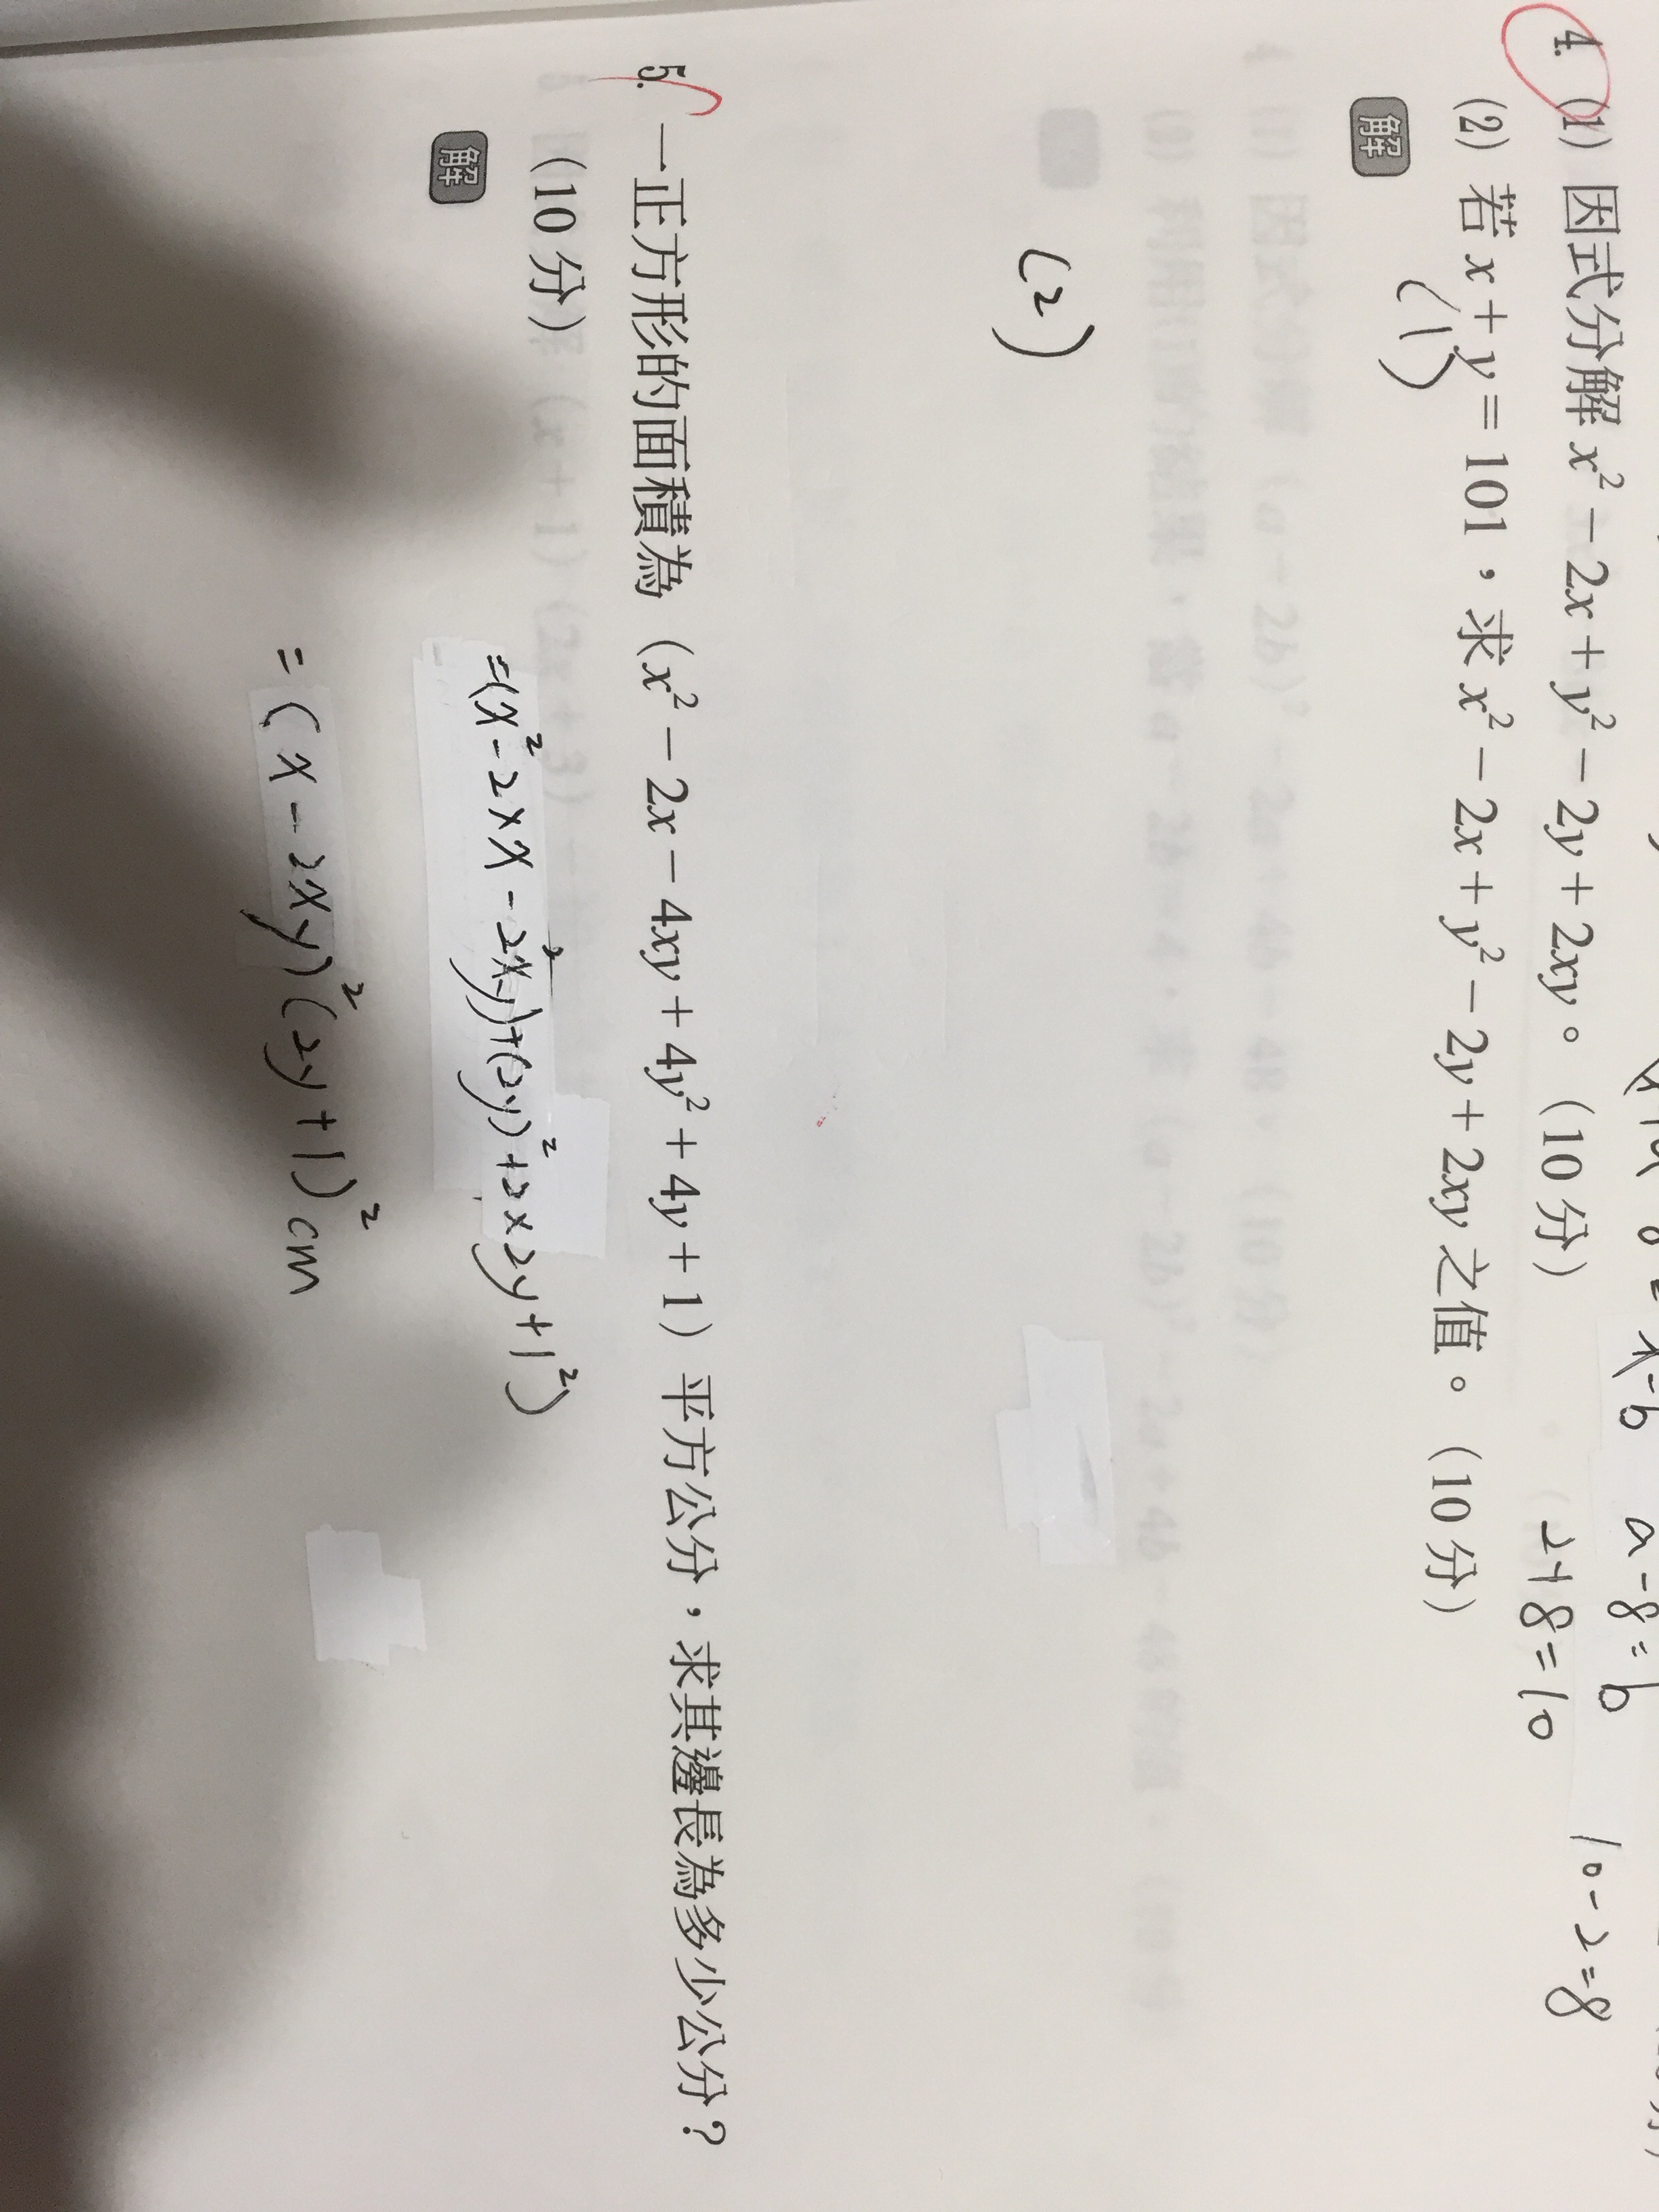 4. (1) 因式分解 x² − 2x + y² − 2y + 2xy。（10 分）
(2) 若 x + y = 101，求 x² − 2x + y² − 2y + 2xy 之值。（10 分）
解
(1)
a-8=b
2+8=10
10-2=8
(2)
5. 一正方形的面積為（x² − 2x − 4xy + 4y² + 4y + 1）平方公分，求其邊長為多少公分？
（10 分）
解
=(x²-2×x-2xy)+(2y)²+2×2y+1²)
=(x-2xy)²(2y+1)²cm